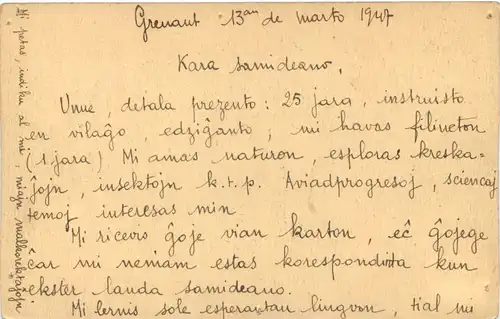 Grenaut 13an de marto 1947
Kara samideano,
Unue, detala prezento: 25 jara, instruisto
en vilaĝo, edziĝanto; mi havas filineton
(1 jara) Mi amas naturon, esploras kreska-
ĵojn, insektojn k.t.p. Aviadprogresoj, sciencaj
temoj interesas min
Mi ricevis ĝoje vian karton, eĉ ĝojege
ĉar mi neniam estas korespondita kun
ekster landa samideano.
Mi lernis sole esperantan lingvon, tial mi
Mi petas, indiku al mi, miajn malkorektaĵojn